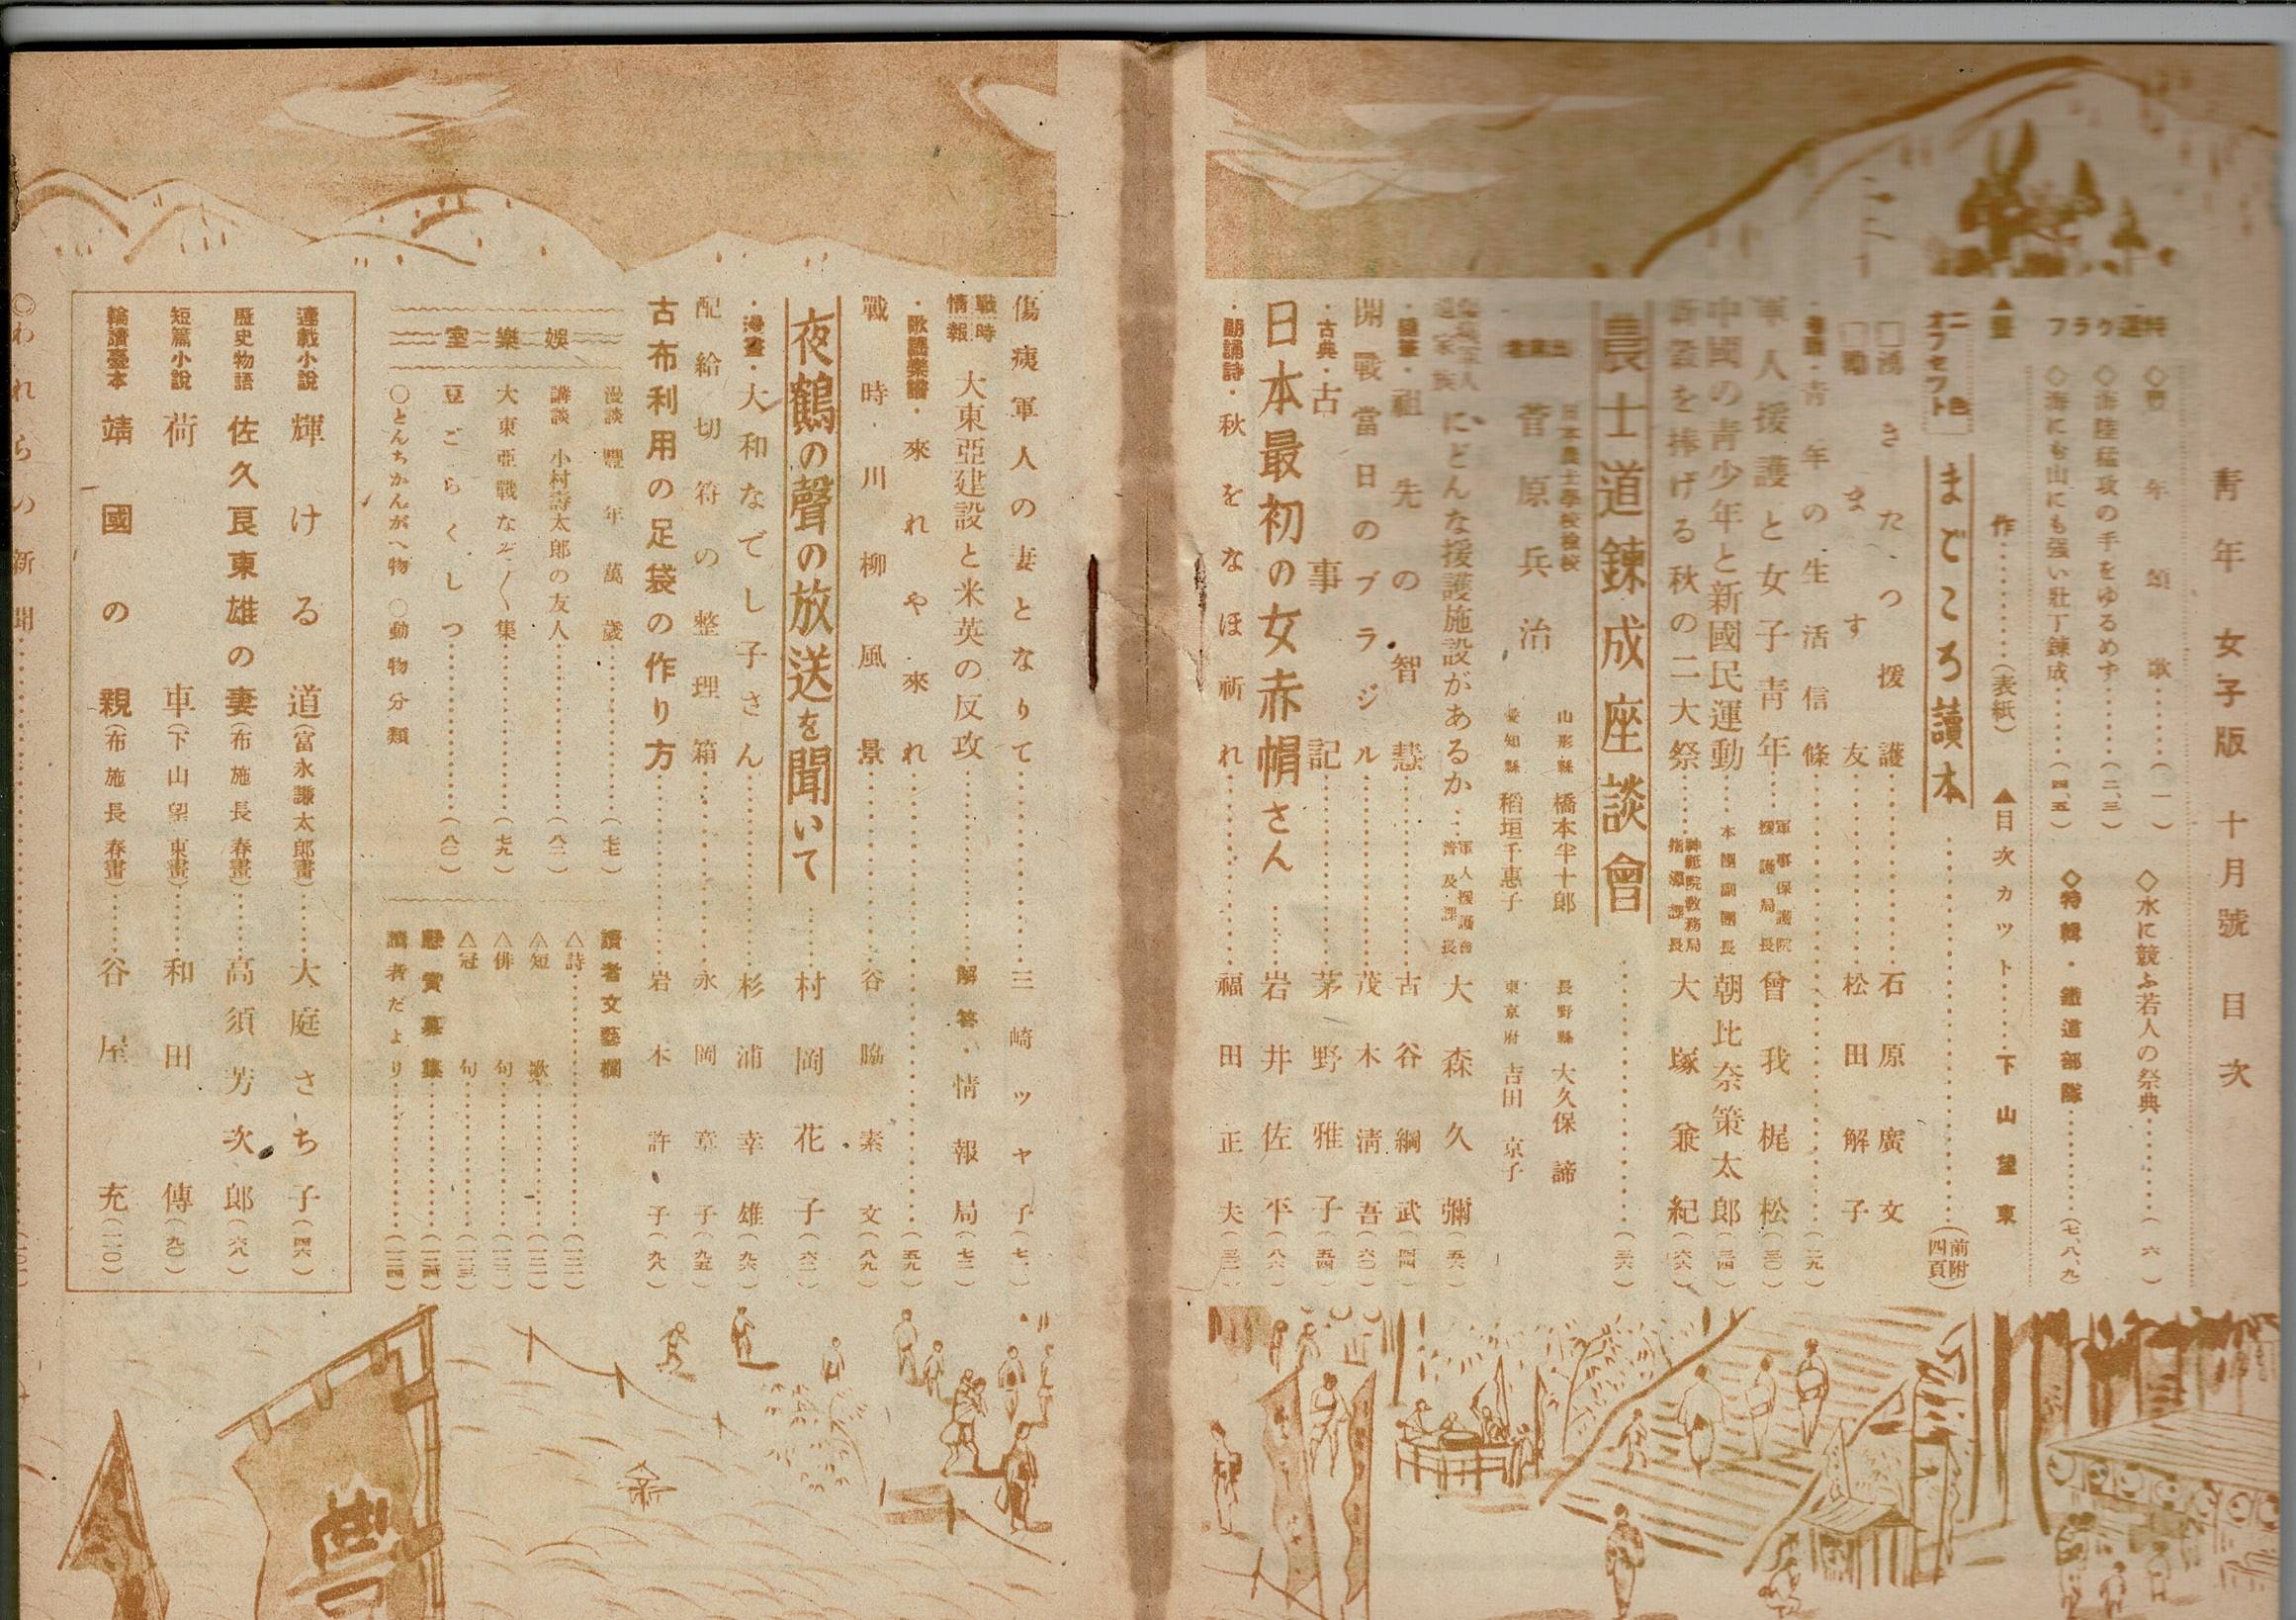 青年 女子版 十月號 目次
特選グラフ
◇豐年頌歌……(一)
◇海陸猛攻の手をゆるめず……(二、三)
◇海にも山にも强い壯丁鍊成……(四、五)
◇水に競ふ若人の祭典……(六)
◇特輯・鐵道部隊……(七、八、九)
作……(表紙)
▲目次カット……下山望東
二色オフセット
まごころ讀本……(前附四頁)
援護……石原廣文
友……松田解子
靑年の生活信條……(二九)
軍人援護と女子靑年……軍事保護院援護局長 曾我梶松(三〇)
中國の靑少年と新國民運動……本團副團長 朝比奈策太郎(三四)
新穀を捧げる秋の二大祭……神祇院敎務局指導課長 大塚兼紀(六六)
農士道鍊成座談會……(三六)
出席者
日本農士學校檢校 菅原兵治
山形縣 橋本半十郎
長野縣 大久保諦
愛知縣 稻垣千惠子
東京府 吉田京子
傷痍軍人遺家族にどんな援護施設があるか……軍人援護會普及課長 大森久彌(五六)
隨筆・祖先の智慧……古谷綱武(四四)
開戰當日のブラジル……茂木淸吾(六〇)
・古典・古事記……茅野雅子(五四)
日本最初の女赤帽さん……岩井佐平(八六)
・朗誦詩・秋をなほ祈れ……福田正夫(三二)
傷痍軍人の妻となりて……三崎ツヤ子
戰時情報 大東亞建設と米英の反攻……解答・情報局(七二)
・歌謠樂譜・來れや來れ……(五九)
戰時川柳風景……谷脇素文(八九)
夜鶴の聲の放送を聞いて……村岡花子(六二)
・漫畫・大和なでし子さん……杉浦幸雄(九六)
配給切符の整理箱……永岡章子(九五)
古布利用の足袋の作り方……岩木許子(九八)
娛樂室
漫談 豐年萬歲……(七七)
講談 小村壽太郎の友人……(八二)
大東亞戰なぞ〱集……(七九)
豆ごらくしつ……(八〇)
〇とんちかんがへ物 〇動物分類
讀者文藝欄
△詩……(一二一)
△短歌……(一二二)
△俳句……(一二三)
△冠句……(一二三)
懸賞募集……(一二四)
讀者だより……(一二四)
連載小說 輝ける道(富永謙太郎畫)……大庭さち子(四六)
歷史物語 佐久良東雄の妻(布施長春畫)……高須芳次郎(六八)
短篇小說 荷車(下山望東畫)……和田傳(九〇)
輪讀臺本 靖國の親(布施長春畫)……谷屋充(一一〇)
◎われらの新聞……